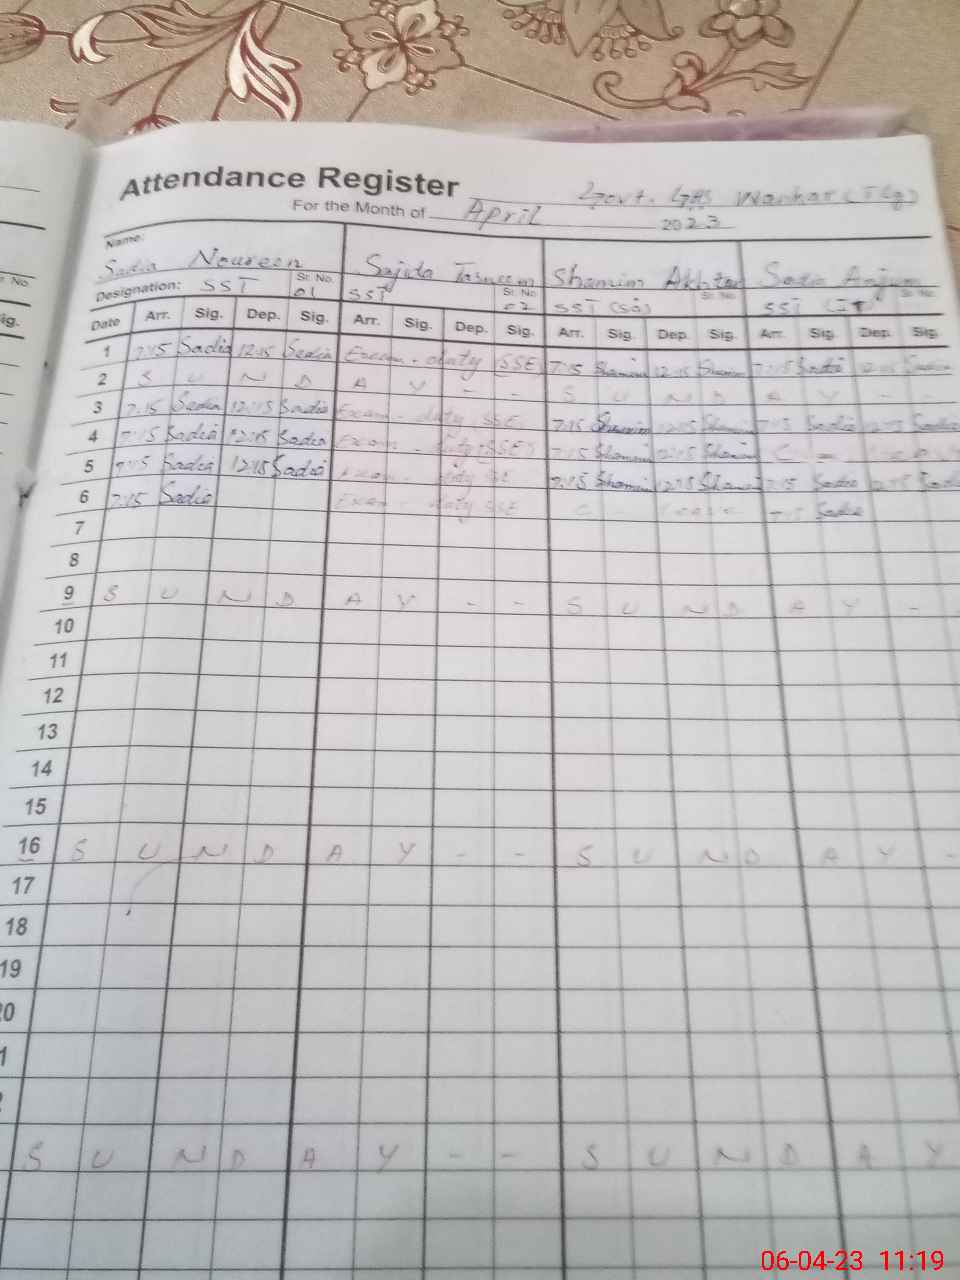 Attendance Register
Govt. GHS Wanhar (Tlg)
For the Month of April 2023
Name:
Sadia Noureen Sajida Tasneem Shamim Akhtar Sadia Anjum
Designation: SST Sr. No. 01 SST Sr. No. 02 SST (Sci) Sr. No. SST (IT) Sr. No.
Date Arr. Sig. Dep. Sig. Arr. Sig. Dep. Sig. Arr. Sig. Dep. Sig. Arr. Sig. Dep. Sig.
1 7:15 Sadia 12:15 Sadia Exam - duty (SSE) 7:15 Shamim 12:15 Shamim 7:15 Sadia 12:15 Sadia
2 S U N D A Y - - S U N D A Y - -
3 7:15 Sadia 12:15 Sadia Exam - duty SSE 7:15 Shamim 12:15 Shamim 7:15 Sadia 12:15 Sadia
4 7:15 Sadia 12:15 Sadia Exam - duty (SSE) 7:15 Shamim 12:15 Shamim C -
5 7:15 Sadia 12:15 Sadia Exam - duty SSE 7:15 Shamim 12:15 Shamim 7:15 Sadia 12:15 Sadia
6 7:15 Sadia Exam - duty SSE C - Leave 7:15 Sadia
7
8
9 S U N D A Y - - S U N D A Y -
10
11
12
13
14
15
16 S U N D A Y - - S U N D A Y -
17
18
19
S U N D A Y - - S U N D A Y
06-04-23 11:19